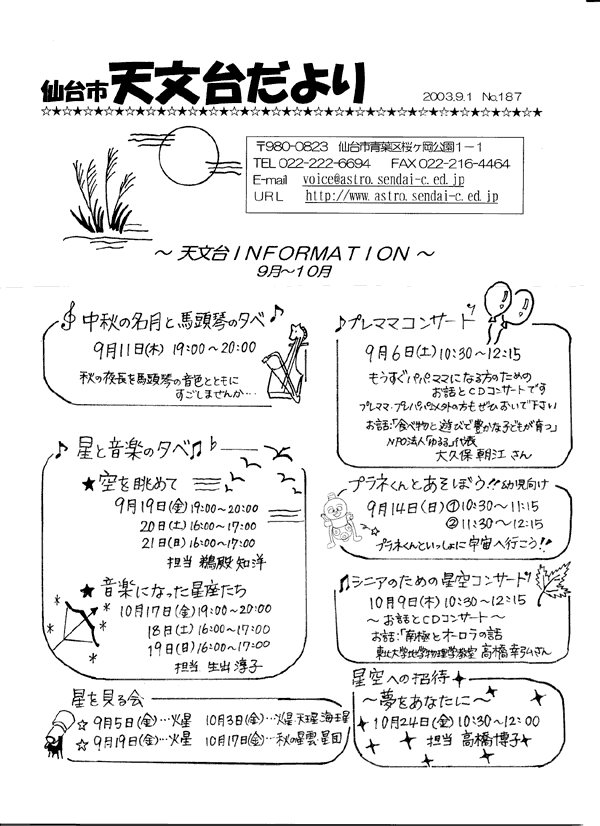 仙台市 天文台だより 2003.9.1 No.187
〒980-0823 仙台市青葉区桜ヶ岡公園1-1
TEL 022-222-6694 FAX 022-216-4464
E-mail voice@astro.sendai-c.ed.jp
URL http://www.astro.sendai-c.ed.jp
～ 天文台INFORMATION ～
9月～10月
中秋の名月と馬頭琴の夕べ♪
9月11日(木) 19:00～20:00
秋の夜長を馬頭琴の音色とともに
すごしませんか…
♪星と音楽の夕べ♫
★空を眺めて
9月19日(金) 19:00～20:00
20日(土) 16:00～17:00
21日(日) 16:00～17:00
担当 鵜殿 知洋
★音楽になった星座たち
10月17日(金) 19:00～20:00
18日(土) 16:00～17:00
19日(日) 16:00～17:00
担当 生出 淳子
星を見る会
☆9月5日(金)…火星 10月3日(金)…火星・天王星・海王星
☆9月19日(金)…火星 10月17日(金)…秋の星雲・星団
♪プレママコンサート
9月6日(土) 10:30～12:15
もうすぐパパ・ママになる方のための
お話とCDコンサートです
プレママ・プレパパ以外の方もぜひおいで下さい
お話:「食べ物と遊びで豊かな子どもが育つ」
NPO法人「ゆるる」代表
大久保 朝江 さん
プラネくんとあそぼう!! 幼児向け
9月14日(日) ①10:30～11:15
②11:30～12:15
プラネくんといっしょに宇宙へ行こう!!
♫シニアのための星空コンサート
10月9日(木) 10:30～12:15
～お話とCDコンサート～
お話:「南極とオーロラの話
東北大学地球物理学教室 高橋幸弘さん
星空への招待
～夢をあなたに～
10月24日(金) 10:30～12:00
担当 高橋博子